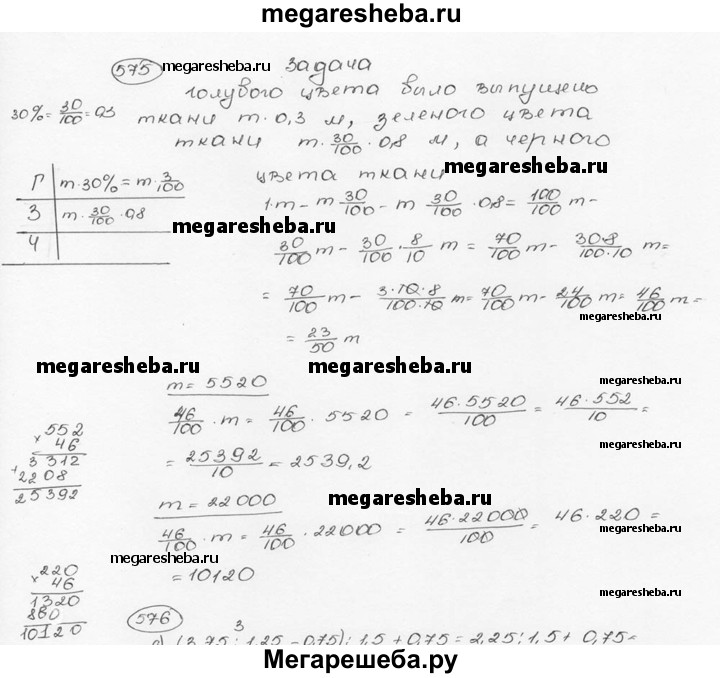 megaresheba.ru
575 megaresheba.ru Задача
голубого цвета было выпущено
30% = 30/100 = 0,3 ткани m·0,3 м, зеленого цвета
ткани m·30/100·0,8 м, а черного
Г m·30% = m·3/100 цвета ткани megaresheba.ru
З m·30/100·0,8 1·m - m 30/100 - m 30/100·0,8 = 100/100 m -
Ч megaresheba.ru
30/100 m - 30/100·8/10 m = 70/100 m - 30·8/100·10 m =
= 70/100 m - 3·10·8/100·10 m = 70/100 m - 24/100 m = 46/100 m =
megaresheba.ru
= 23/50 m
megaresheba.ru megaresheba.ru
m = 5520 megaresheba.ru
46/100·m = 46/100·5520 = 46·5520/100 = 46·552/10 =
megaresheba.ru
= 25392/10 = 2539,2
552
× 46
3312
+2208
25392
m = 22000 megaresheba.ru
46/100·m = 46/100·22000 = 46·22000/100 = 46·220 =
megaresheba.ru megaresheba.ru
= 10120
220
× 46
1320
880
10120
576
3
а) (3,75 : 1,25 - 0,75) : 1,5 + 0,75 = 2,25 : 1,5 + 0,75 =
Мегарешеба.ру